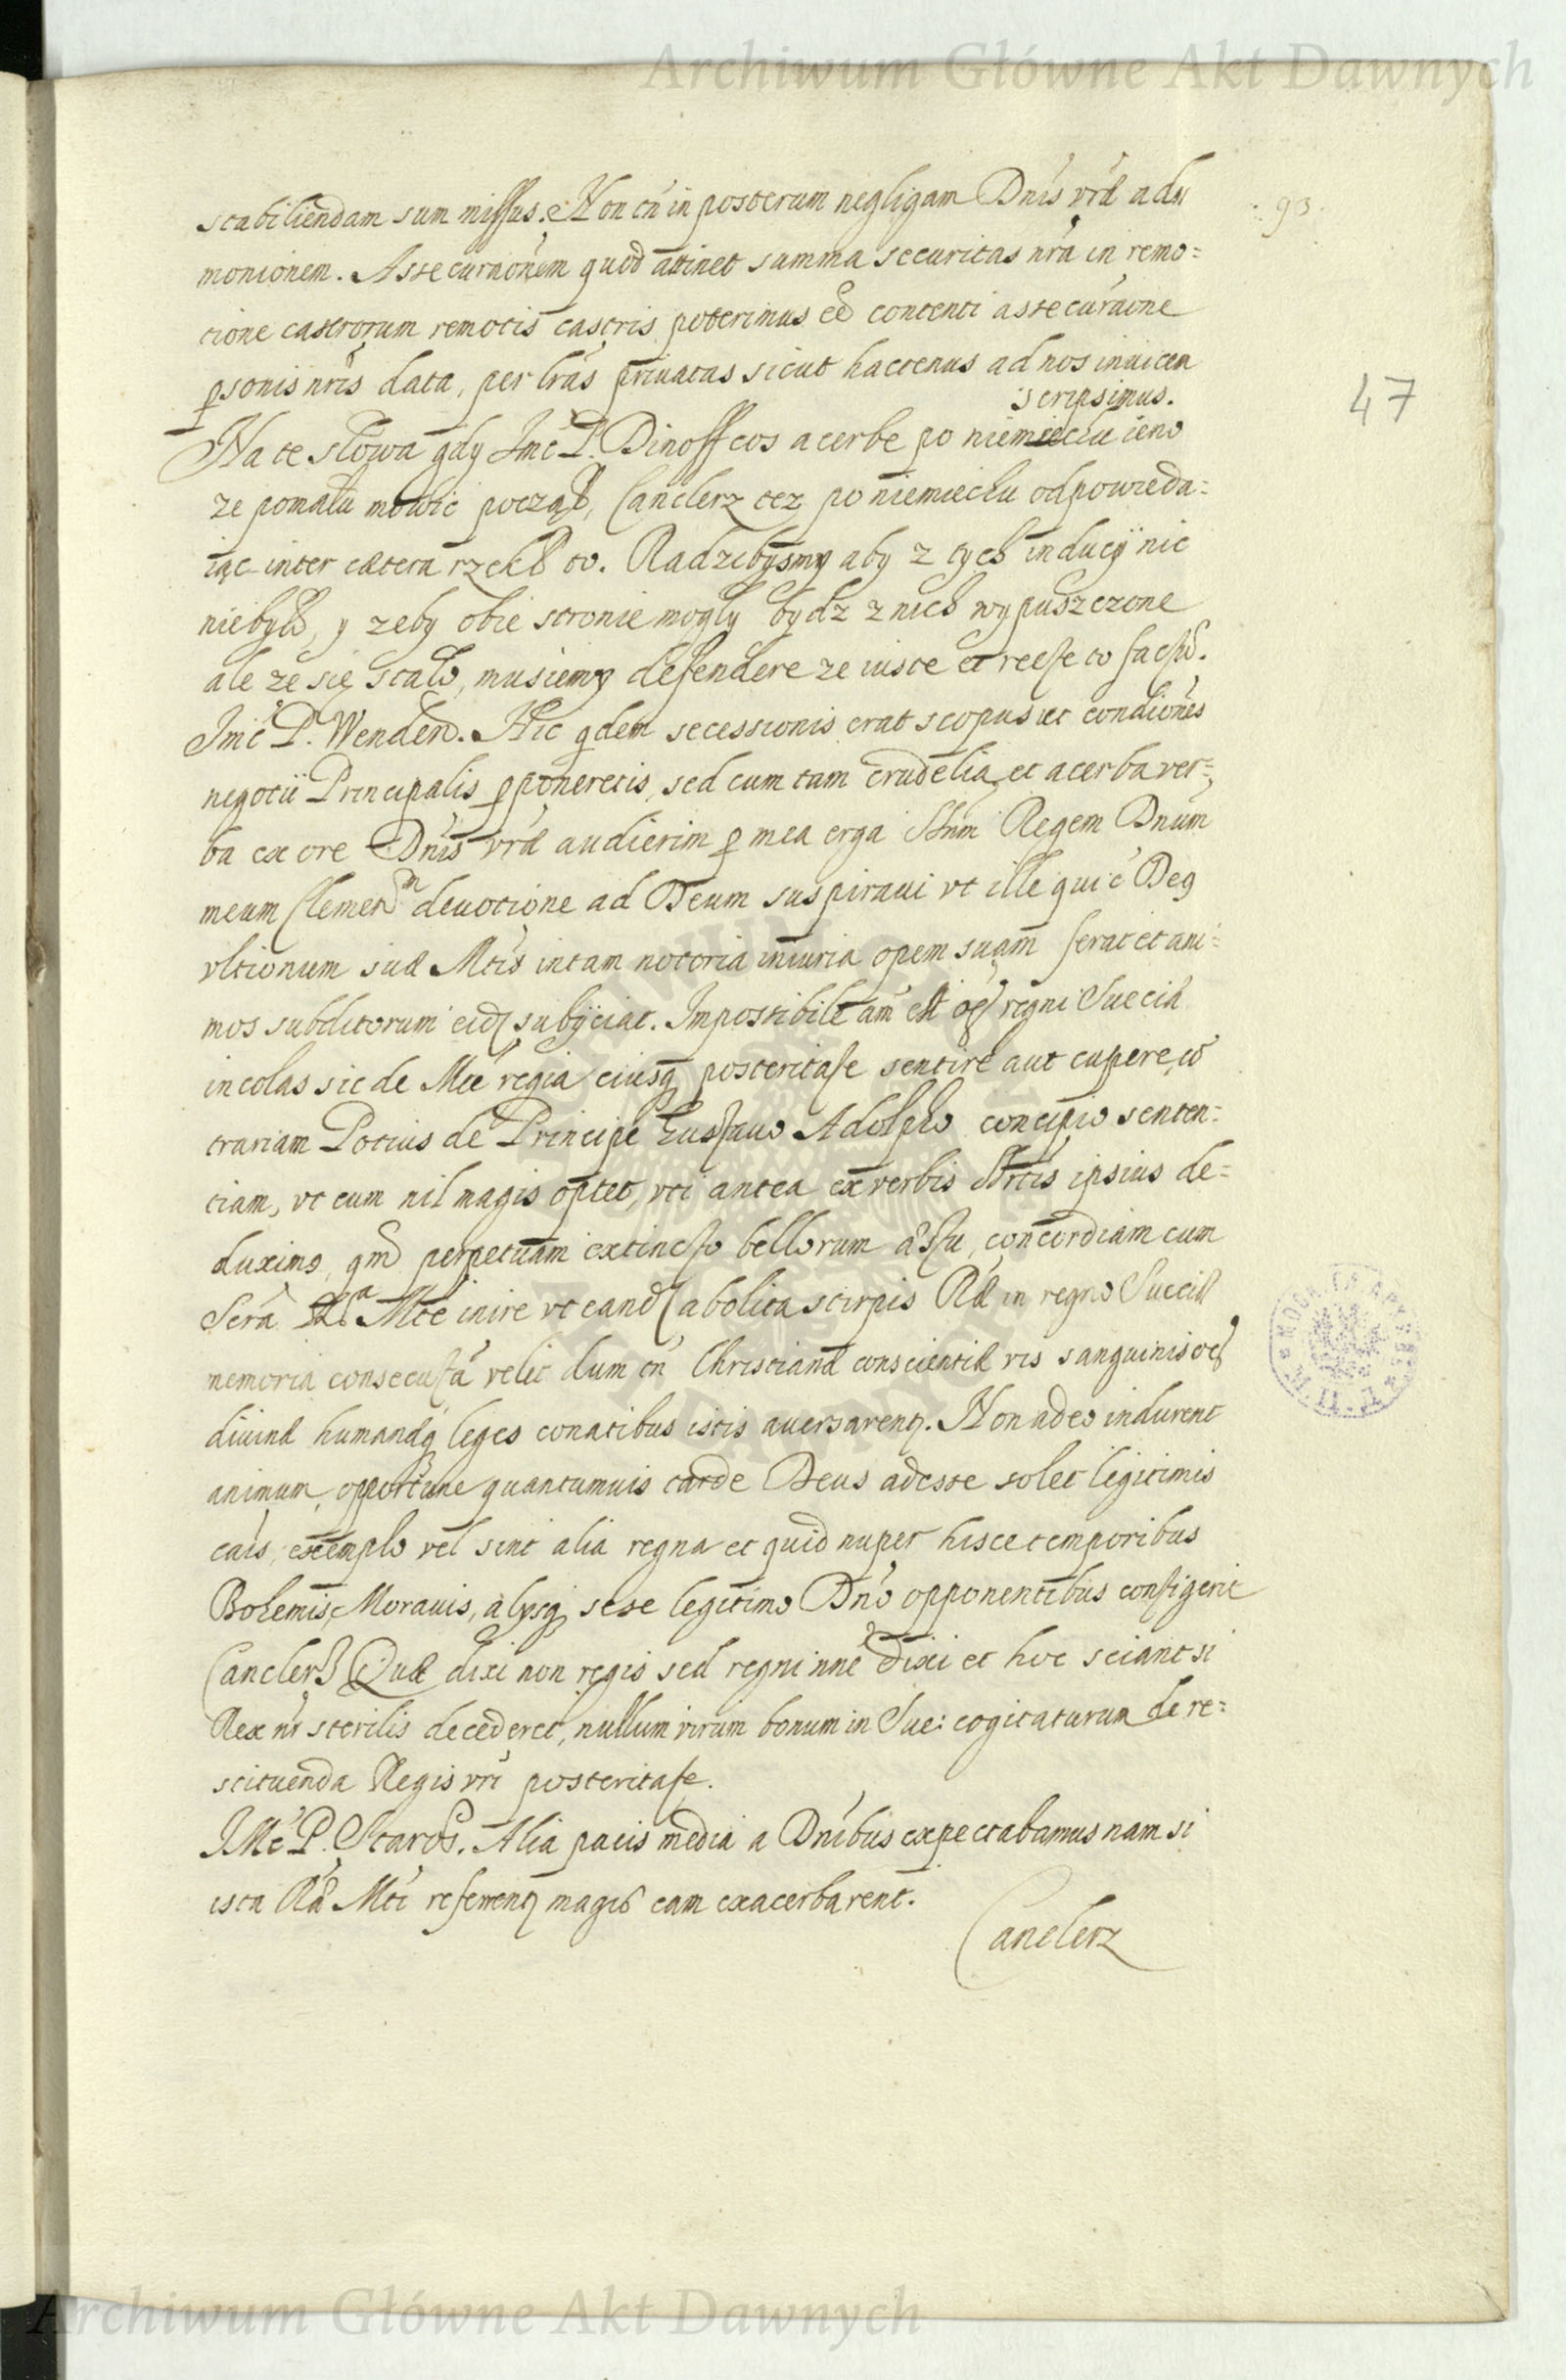 Archiwum Główne Akt Dawnych
stabiliendam sum missus. Non tñ in posterum negligam Dnis vræ adm
93.
monionem. Assecuraōnem quod attinet summa securitas nrã in remo=
tione castrorum remotis castris poterimus eē contenti assecuraōne
47
psonis nris data, per lrãs priuatas sicut hactenus ad nos inuicem
scripsimus.
Na te słowa gdy Jmć P. Dinoff cos acerbe po niemiecku ieno
ze pomału mowic począł, Canclerz tez po niemiecku odpowieda=
iąc inter cætera rzekł to. Radzibysmy aby z tych inducÿ nic
niebyło, y zeby obie stronie mogły bydz z nich wypuszczone
ale ze się stało, musiemy defendere ze iuste et recte to facto.
Jmć P. Wenden. Hic qdem secessionis erat scopus ut condiōnes
negotii Principalis pponeretis, sed cum tam crudelia et acerba ver=
ba ex ore Dnis vræ audierim p mea erga Srm Regem Dnum
meum Clemen m deuotione ad Deum suspiraui vt ille qui ē Deg
vltionum suæ Mtis in tam notoria iniuria opem suam ferat et ani=
mos subditorum eidꝫ subÿciat. Impossibile am̃ est oēs regni Sueciæ
incolas sic de Mte regia eiusq posteritate sentire aut cupere, cō
trariam Potius de Principe Gustauo Adolpho concipio senten=
tiam, vt eum nil magis optet, vti antea ex verbis Srtis ipsius de=
duximo, qm̃ perpetuam extincto bellorum æstu, concordiam cum
Sera Mte inire vt eand abolita stirpis Ræ in regno Sueciæ
memoria consecutã velit dum tñ Christianæ conscientiæ vis sanguinis oēs
diuinæ humanæq leges conatibus istis auersarentꝫ. Non adeo indurent
animum, opportune quantumuis tarde Deus adesse solet legitimis
cais, exemplo vel sint alia regna et quid nuper hisce temporibus
Bohemis, Morauis, alysq sese legitimo Dno opponentibus contigerit
Canclerz Quæ dixi non regis sed regni nñe dixi et hoc sciant si
Rex nr sterilis decederet, nullum virum bonum in Sue: cogitaturum de re=
stituenda Regis vri posteritate.
JMć P. Staros. Alia pacis media a Dnibus expectabamus nam si
ista Ræ Mti referrentꝫ magis eam exacerbarent.
Canclerz
Archiwum Główne Akt Dawnych